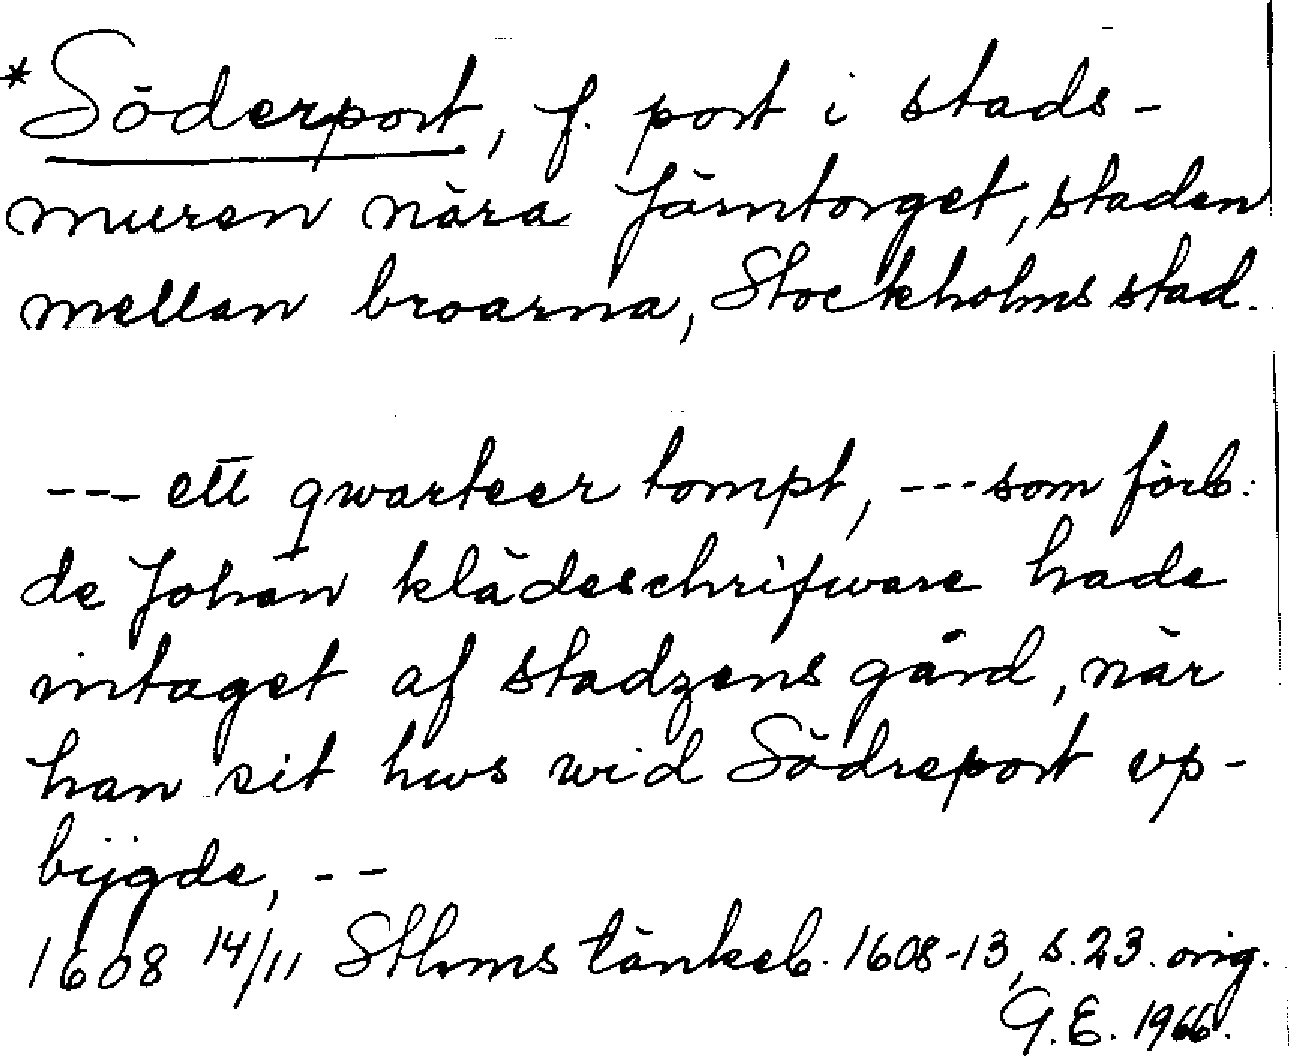 *Söderport, f. port i stads-
muren nära Järntorget, staden
mellan broarna, Stockholms stad.
--- ett qwarteer tompt, --- som förb:
de Johan klädeschrifware hade
intaget af stadzens gård, när
han sit hws wid Södreport vp-
bÿgde, --
1608 14/11 Sthms tänkeb. 1608-13, s. 23. orig.
G.E. 1966.